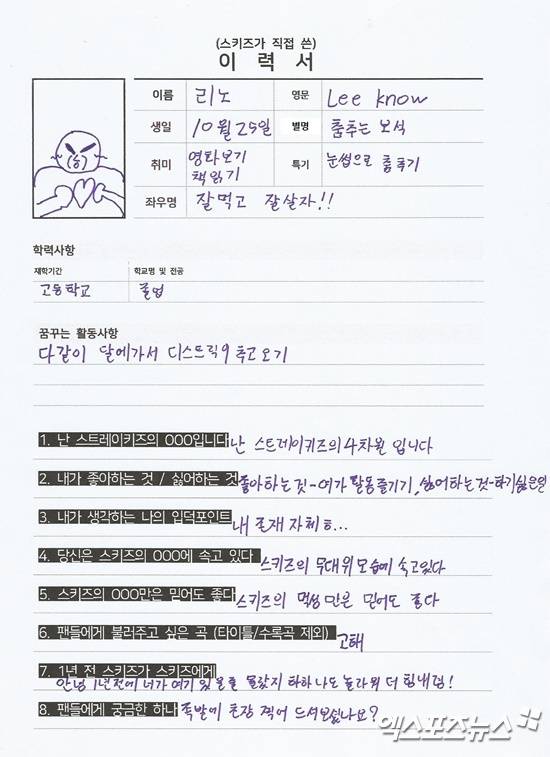 (스키즈가 직접 쓴)
이 력 서
이름 리노 영문 Lee know
생일 10월 25일 별명 춤추는 보석
취미 영화보기 특기 눈썹으로 춤추기
책읽기
좌우명 잘먹고 잘살자!!
학력사항
재학기간 학교명 및 전공
고등학교 졸업
꿈꾸는 활동사항
다같이 달에가서 디스트릭9 추고오기
1. 난 스트레이키즈의 OOO입니다 난 스트레이키즈의 4차원 입니다
2. 내가 좋아하는 것 / 싫어하는 것 좋아하는것-여가 활동즐기기, 싫어하는것-하기싫은일
3. 내가 생각하는 나의 입덕포인트 내 존재 자체ㅎ...
4. 당신은 스키즈의 OOO에 속고 있다 스키즈의 무대위 모습에 속고있다
5. 스키즈의 OOO만은 믿어도 좋다 스키즈의 먹성만은 믿어도 좋다
6. 팬들에게 불러주고 싶은 곡 (타이틀/수록곡 제외) 고해
7. 1년 전 스키즈가 스키즈에게
안녕 1년전에 너가 여기 있을줄 몰랐지 하하 나도 놀라워 더 힘내렴!
8. 팬들에게 궁금한 하나 족발에 춘장 찍어 드셔보셨나요?
엑스포츠뉴스